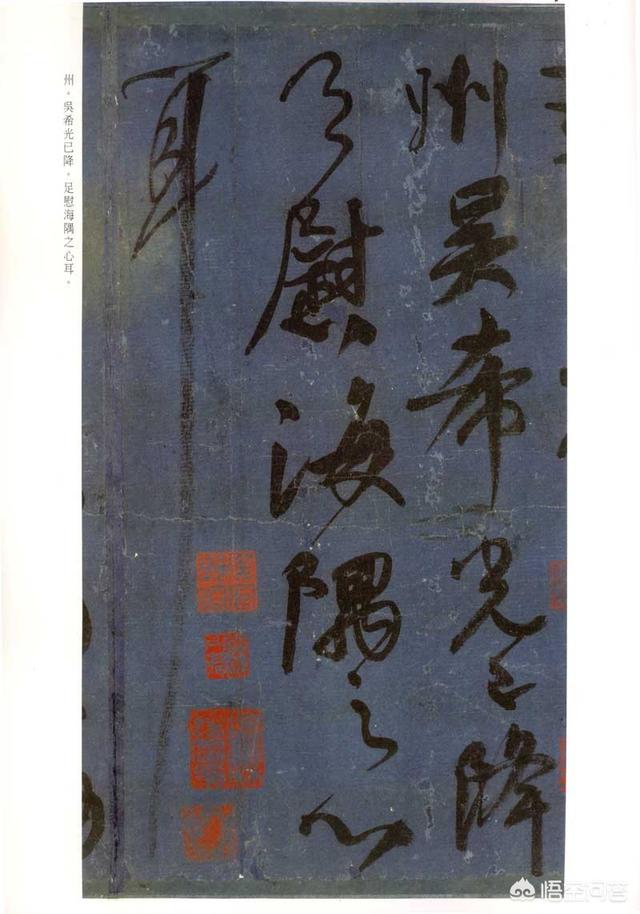 州吳希光已降
足慰海隅之心
耳
州。吳希光已降。足慰海隅之心耳。
悟空问答